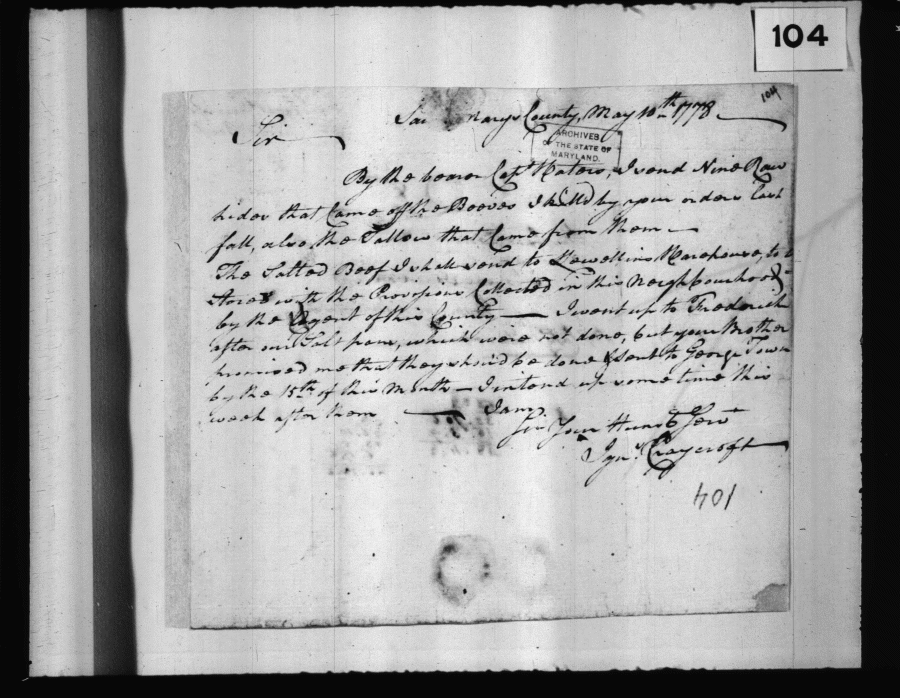 104
104
Sai Marys County, May 10th 1778
Sir
ARCHIVES
OF THE STATE OF
MARYLAND.
By the bearer Capt Waters, I send Nine Raw
hides that Came off the Beeves I kill'd by your orders last
fall, also the Tallow that Came from them —
The Salted Beef I shall send to Lewellins Warehouse, to
with the Provisions Collected in this Neighbourhood
by the Agent of this County — I went up to Frederick
after our Salt pans, which were not done, but your Brother
promised me that they should be done & sent to George Town
by the 15th of this Month — I intend up some time this
week after them — I am
Sir Your Humb Serv
Igns Craycroft
401